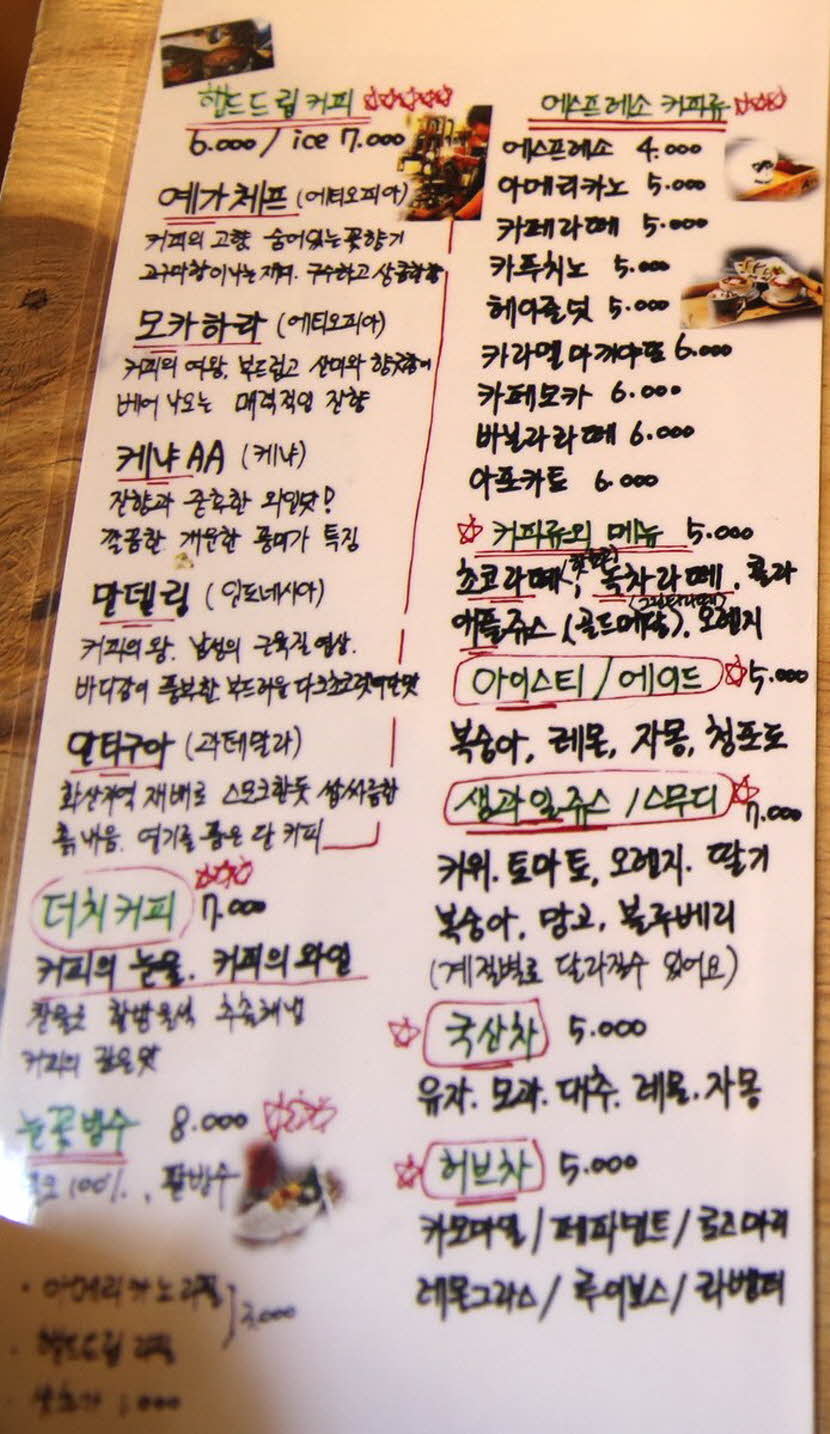 핸드드립커피
6.000 / ice 7.000
예가체프 (에티오피아)
커피의 고향 숨어있는 꽃향기
고구마향이나는 구수하고 상큼한향
모카하라 (에티오피아)
커피의 여왕, 부드럽고 산미와 향긋함이
베어 나오는 매력적인 잔향
케냐AA (케냐)
잔향과 와인맛!
깔끔한 개운한 풍미가 특징
만델링 (인도네시아)
커피의 왕. 남성의 근육질 연상.
바디감이 풍부한 부드러운 다크초코렛
안티구아 (과테말라)
화산지역 재배로 스모크한듯 쌉싸름함
흙내음. 연기를 품은 단 커피
더치커피 7.000
커피의 눈물. 커피의 와인
찬물로 한방울씩 추출해낸
커피의 깊은맛
눈꽃빙수 8.000
100%, 팥빙수
· 아메리카노리필
· 핸드드립 리필
에스프레소 커피류
에스프레소 4.000
아메리카노 5.000
카페라떼 5.000
카푸치노 5.000
헤이즐넛 5.000
카라멜마끼아또 6.000
카페모카 6.000
바닐라라떼 6.000
아포카토 6.000
커피류외 메뉴 5.000
초코라떼, 녹차라떼, 콜라
애플쥬스 (골드메달), 오렌지
아이스티 / 에이드 5.000
복숭아, 레몬, 자몽, 청포도
생과일쥬스 / 스무디 7.000
키위. 토마토, 오렌지. 딸기
복숭아, 망고, 블루베리
(계절별로 달라질수 있어요)
국산차 5.000
유자. 모과. 대추. 레몬. 자몽
허브차 5.000
카모마일 / 페파민트 / 로즈마리
레몬그라스 / 루이보스 / 라벤더